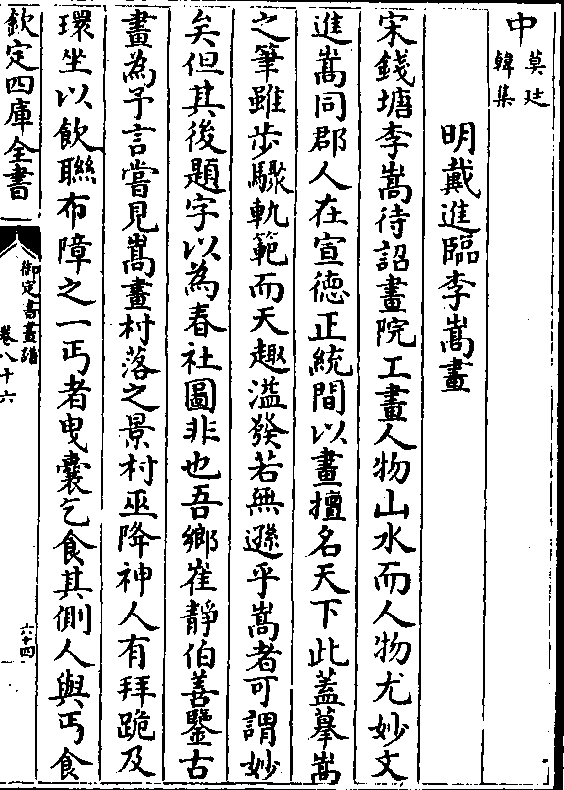 中莫廷韓集
明戴進臨李嵩畫
宋錢塘李嵩待詔畫院工畫人物山水而人物尤妙文
進嵩同郡人在宣德正統間以畫擅名天下此蓋摹嵩
之筆雖步驟軌範而天趣溢發若無遜乎嵩者可謂妙
矣但其後題字以為春社圖非也吾鄉崔靜伯善鑒古
畫為予言嘗見嵩畫村落之景村巫降神人有拜跪及
環坐以飲聯布障之一丐者曳囊乞食其側人與丐食
欽定四庫全書
御定書畫譜
卷八十六
六十四